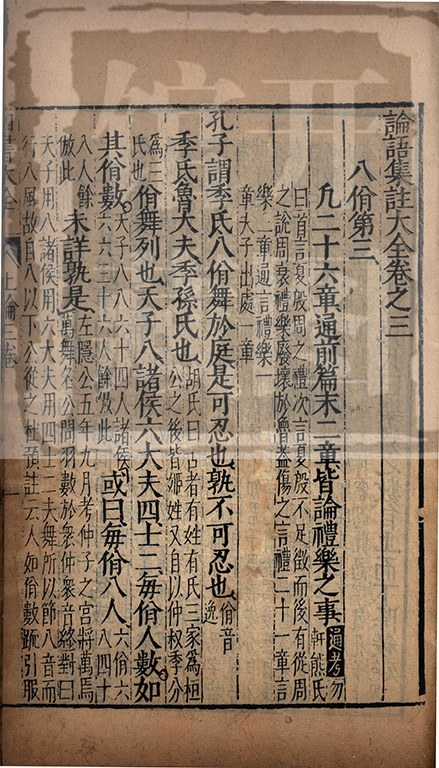 論語集註大全卷之三
八佾第三
凡二十六章通前篇末二章皆論禮樂之事通考勿軒熊氏
曰首言夏殷周之禮次言夏殷不足徵而後有從周
之說周衰禮樂廢壞於魯蓋傷之言禮二十一章言
樂二章通言禮樂一
章夫子出處一章
孔子謂季氏八佾舞於庭是可忍也孰不可忍也佾音逸
季氏魯大夫季孫氏也胡氏曰古者有姓有氏三家為桓公之後皆姬姓又自以仲叔季分
為三氏也佾舞列也天子八諸侯六大夫四士二每佾人數如
其佾數天子八八六十四人諸侯六六三十六人餘倣此或曰每佾八人六佾六八四十
八人餘倣此未詳孰是左隱公五年九月考仲子之宮將萬焉萬舞名公問羽數於衆仲衆音終對曰
天子用八諸侯用六大夫用四士二夫舞所以節八音而
行八風故自八以下公從之杜預註云人如佾數疏引服
書大全 上論三卷